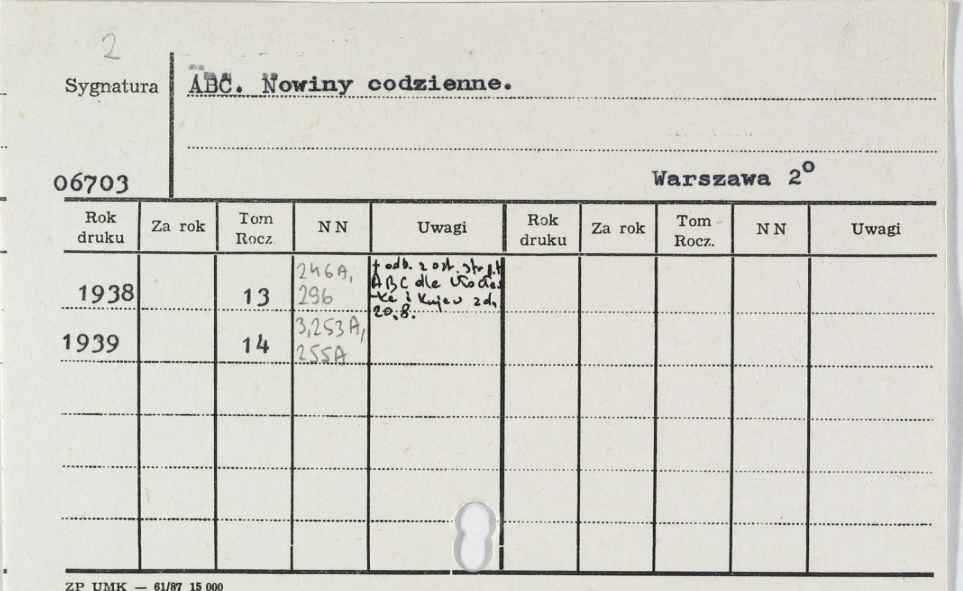 2
Sygnatura ABC. Nowiny codzienne.
06703 Warszawa 2⁰
Rok druku Za rok Tom Rocz. NN Uwagi Rok druku Za rok Tom Rocz. NN Uwagi
1938 13 246A, 296 + odb. z ost. str. p.t. ABC dla Włocław -ka i Kujaw z dn. 20.8.
1939 14 3,253A, 255A
ZP UMK — 61/87 15 000